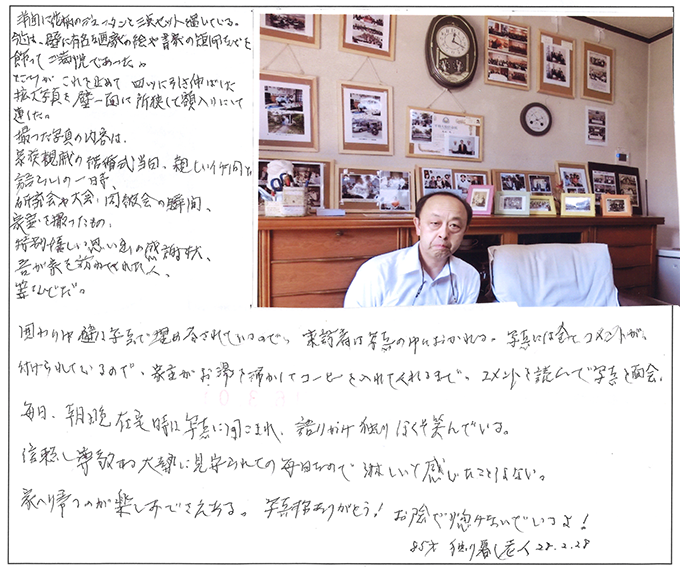 飾ってご満悦であった。
ところがこれを止めて 四ツに引き伸ばした
拡大写真を壁一面に所狭しと額入りにして
撮った写真の内容は、
家族親戚の結婚式当日、親しい仲間と
語らいの一時、
研究会や大会、同級会の瞬間、
家宝を撮ったもの、
特別嬉しい思い出の感謝状、
吾が家を訪ねてくれた人、
等などだ。
囲わりの壁は写真で埋め尽されているので、来訪者は写真の中におかれる。写真には全てコメントが、
付けられているので、家主がお湯を沸かしてコーヒーを入れてくれるまで、コメントを読んで写真と面会。
毎日、朝晩在宅時は写真に囲まれ、語りかけ独りはなく笑んでいる。
信頼し尊敬する大勢に見守られての毎日なので 淋しいと感じたことはない。
家へ帰るのが楽しみでさえある。写真ありがとう! お陰で惚けないでいるよ!
85才 独り暮し老人 28.2.28